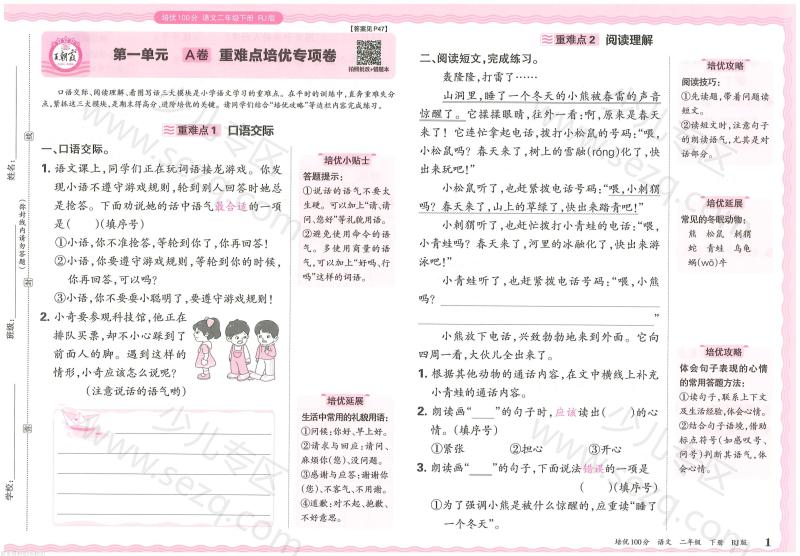 培优100分 语文二年级下册 RJ版
王朝霞
【答案见P47】
第一单元 A卷 重难点培优专项卷
拍照批改+错题本
口语交际、阅读理解、看图写话三大模块是小学语文学习的重难点。在平时的训练中,直奔重难失分
点,紧抓这三大模块,是期末得高分、进阶培优的关键。请同学们结合“培优攻略”等边栏内容完成练习。
重难点1 口语交际
一、口语交际。
1. 语文课上,同学们正在玩词语接龙游戏。你发
现小语不遵守游戏规则,轮到别人回答时她总
是抢答。下面劝说她的话中语气最合适的一项
是( )(填序号)
①小语,你不准抢答,等轮到你了,你再回答!
②小语,你要遵守游戏规则,等轮到你的时候,
你再回答,可以吗?
③小语,你不要耍小聪明了,要遵守游戏规则!
2. 小奇要参观科技馆,他正在
排队买票,却不小心踩到了
前面人的脚。遇到这样的
情形,小奇应该怎么说呢?
(注意说话的语气哟)
培优小贴士
答题提示:
①说话的语气不要太
生硬。可以加上“请、请
问、您好”等礼貌用语。
②避免使用命令的语
气。多使用商量的语
气,可以加上“好吗、行
吗”这样的词语。
培优延展
生活中常用的礼貌用语:
①问候:你好、早上好。
②请求与回应:请问、
麻烦你(您)、没问题。
③感谢与应答:谢谢你
(您)、不客气、不用谢。
④道歉:对不起、抱歉、
不好意思。
姓名:
班级:
学校:
(弥封线内请勿答题)
重难点2 阅读理解
二、阅读短文,完成练习。
轰隆隆,打雷了……
山洞里,睡了一个冬天的小熊被春雷的声音
惊醒了。它揉揉眼睛,往外一看:啊,原来是春天
来了!它连忙拿起电话,拨打小松鼠的号码:“喂,
小松鼠吗?春天来了,树上的雪融(róng)化了,快
出来玩吧!”
小松鼠听了,也赶紧拨电话号码:“喂,小刺猬
吗?春天来了,山上的草绿了,快出来踏青吧!”
小刺猬听了,也赶忙拨打小青蛙的电话:“喂,
小青蛙吗?春天来了,河里的冰融化了,快出来游
泳吧!”
小青蛙听了,也赶紧拨电话号码:“喂,小熊
吗?
”
小熊放下电话,兴致勃勃地来到外面。它向
四周一看,大伙儿全来了!
1. 根据其他动物的通话内容,在文中横线上补充
小青蛙的通话内容。
2. 朗读画“____”的句子时,应该读出( )的心
情。(填序号)
①紧张 ②担心 ③开心
3. 朗读画“____”的句子,下面说法错误的一项是
( )(填序号)
①为了强调小熊是被什么惊醒的,应重读“睡了
一个冬天”。
培优攻略
阅读技巧:
①先读题,带着问题读
短文。
②读短文时,注意句子
的朗读语气,尤其是对
话部分。
培优延展
常见的冬眠动物:
熊 松鼠 刺猬
蛇 青蛙 乌龟
蜗(wō)牛
培优攻略
体会句子表现的心情
的常用答题方法:
①读句子,联系上下文
及生活经验,体会心情。
②结合句子语境,借助
标点符号(如感叹号、
问号)判断其语气,体
会心情。
培优100分 语文 二年级 下册 RJ版 1
少儿专区
www.sezq.com